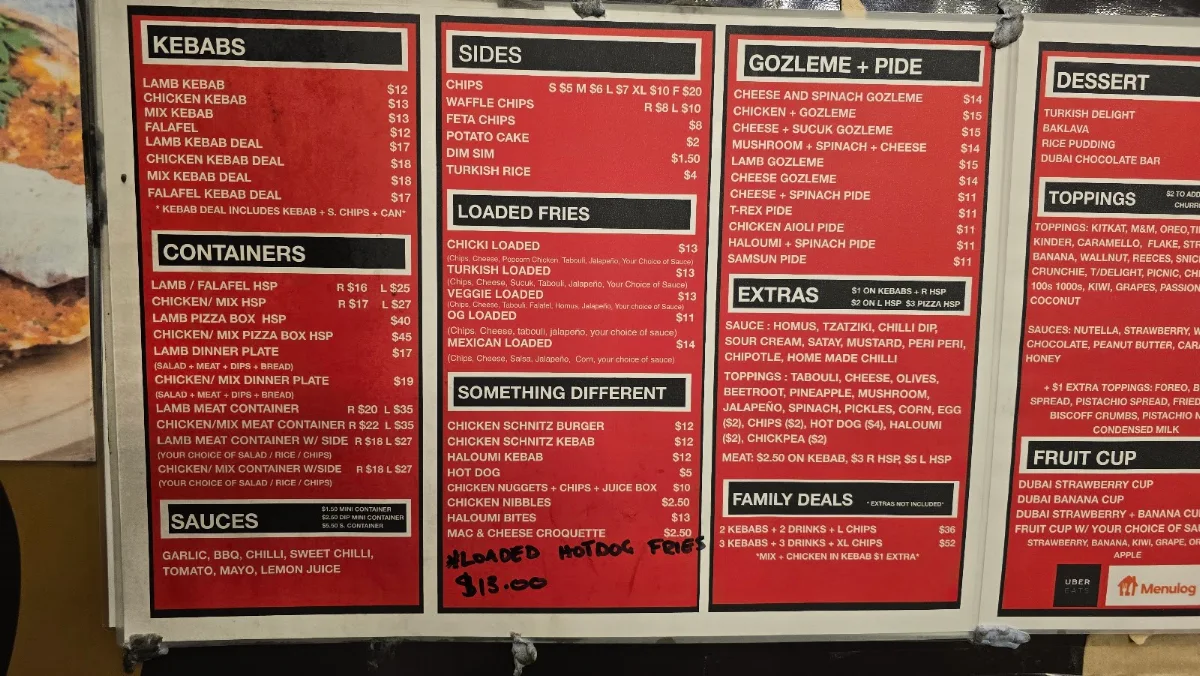 KEBABS
LAMB KEBAB $12
CHICKEN KEBAB $13
MIX KEBAB $13
FALAFEL $12
LAMB KEBAB DEAL $17
CHICKEN KEBAB DEAL $18
MIX KEBAB DEAL $18
FALAFEL KEBAB DEAL $17
* KEBAB DEAL INCLUDES KEBAB + S. CHIPS + CAN*
CONTAINERS
LAMB / FALAFEL HSP R $16 L $25
CHICKEN/ MIX HSP R $17 L $27
LAMB PIZZA BOX HSP $40
CHICKEN/ MIX PIZZA BOX HSP $45
LAMB DINNER PLATE $17
(SALAD + MEAT + DIPS + BREAD)
CHICKEN/ MIX DINNER PLATE $19
(SALAD + MEAT + DIPS + BREAD)
LAMB MEAT CONTAINER R $20 L $35
CHICKEN/MIX MEAT CONTAINER R $22 L $35
LAMB MEAT CONTAINER W/ SIDE R $18 L $27
(YOUR CHOICE OF SALAD / RICE / CHIPS)
CHICKEN/ MIX CONTAINER W/SIDE R $18 L $27
(YOUR CHOICE OF SALAD / RICE / CHIPS)
SAUCES
$1.50 MINI CONTAINER
$2.50 DIP MINI CONTAINER
$5.50 S. CONTAINER
GARLIC, BBQ, CHILLI, SWEET CHILLI,
TOMATO, MAYO, LEMON JUICE
SIDES
CHIPS S $5 M $6 L $7 XL $10 F $20
WAFFLE CHIPS R $8 L $10
FETA CHIPS $8
POTATO CAKE $2
DIM SIM $1.50
TURKISH RICE $4
LOADED FRIES
CHICKI LOADED $13
(Chips, Cheese, Popcorn Chicken, Tabouli, Jalapeño, Your Choice of Sauce)
TURKISH LOADED $13
(Chips, Cheese, Sucuk, Tabouli, Jalapeño, Your Choice of Sauce)
VEGGIE LOADED $13
(Chips, Cheese, Tabouli, Falafel, Homus, Jalapeño, Your Choice of Sauce)
OG LOADED $11
(Chips, Cheese, tabouli, jalapeño, your choice of sauce)
MEXICAN LOADED $14
(Chips, Cheese, Salsa, Jalapeño, Corn, your choice of sauce)
SOMETHING DIFFERENT
CHICKEN SCHNITZ BURGER $12
CHICKEN SCHNITZ KEBAB $12
HALOUMI KEBAB $12
HOT DOG $5
CHICKEN NUGGETS + CHIPS + JUICE BOX $10
CHICKEN NIBBLES $2.50
HALOUMI BITES $13
MAC & CHEESE CROQUETTE $2.50
*LOADED HOTDOG FRIES
$13.00
GOZLEME + PIDE
CHEESE AND SPINACH GOZLEME $14
CHICKEN + GOZLEME $15
CHEESE + SUCUK GOZLEME $15
MUSHROOM + SPINACH + CHEESE $14
LAMB GOZLEME $15
CHEESE GOZLEME $14
CHEESE + SPINACH PIDE $11
T-REX PIDE $11
CHICKEN AIOLI PIDE $11
HALOUMI + SPINACH PIDE $11
SAMSUN PIDE $11
EXTRAS
$1 ON KEBABS + R HSP
$2 ON L HSP $3 PIZZA HSP
SAUCE : HOMUS, TZATZIKI, CHILLI DIP,
SOUR CREAM, SATAY, MUSTARD, PERI PERI,
CHIPOTLE, HOME MADE CHILLI
TOPPINGS : TABOULI, CHEESE, OLIVES,
BEETROOT, PINEAPPLE, MUSHROOM,
JALAPEÑO, SPINACH, PICKLES, CORN, EGG
($2), CHIPS ($2), HOT DOG ($4), HALOUMI
($2), CHICKPEA ($2)
MEAT: $2.50 ON KEBAB, $3 R HSP, $5 L HSP
FAMILY DEALS * EXTRAS NOT INCLUDED*
2 KEBABS + 2 DRINKS + L CHIPS $36
3 KEBABS + 3 DRINKS + XL CHIPS $52
*MIX + CHICKEN IN KEBAB $1 EXTRA*
DESSERT
TURKISH DELIGHT
BAKLAVA
RICE PUDDING
DUBAI CHOCOLATE BAR
TOPPINGS
$2 TO ADD
CHURR
TOPPINGS: KITKAT, M&M, OREO,
KINDER, CARAMELLO, FLAKE,
BANANA, WALLNUT, REECES,
CRUNCHIE, T/DELIGHT, PICNIC,
100s 1000s, KIWI, GRAPES, PASSION
COCONUT
SAUCES: NUTELLA, STRAWBERRY,
CHOCOLATE, PEANUT BUTTER,
HONEY
+ $1 EXTRA TOPPINGS: FOREO,
SPREAD, PISTACHIO SPREAD, FRIED
BISCOFF CRUMBS, PISTACHIO
CONDENSED MILK
FRUIT CUP
DUBAI STRAWBERRY CUP
DUBAI BANANA CUP
DUBAI STRAWBERRY + BANANA CUP
FRUIT CUP W/ YOUR CHOICE OF
STRAWBERRY, BANANA, KIWI, GRAPE,
APPLE
UBER
EATS
Menulog